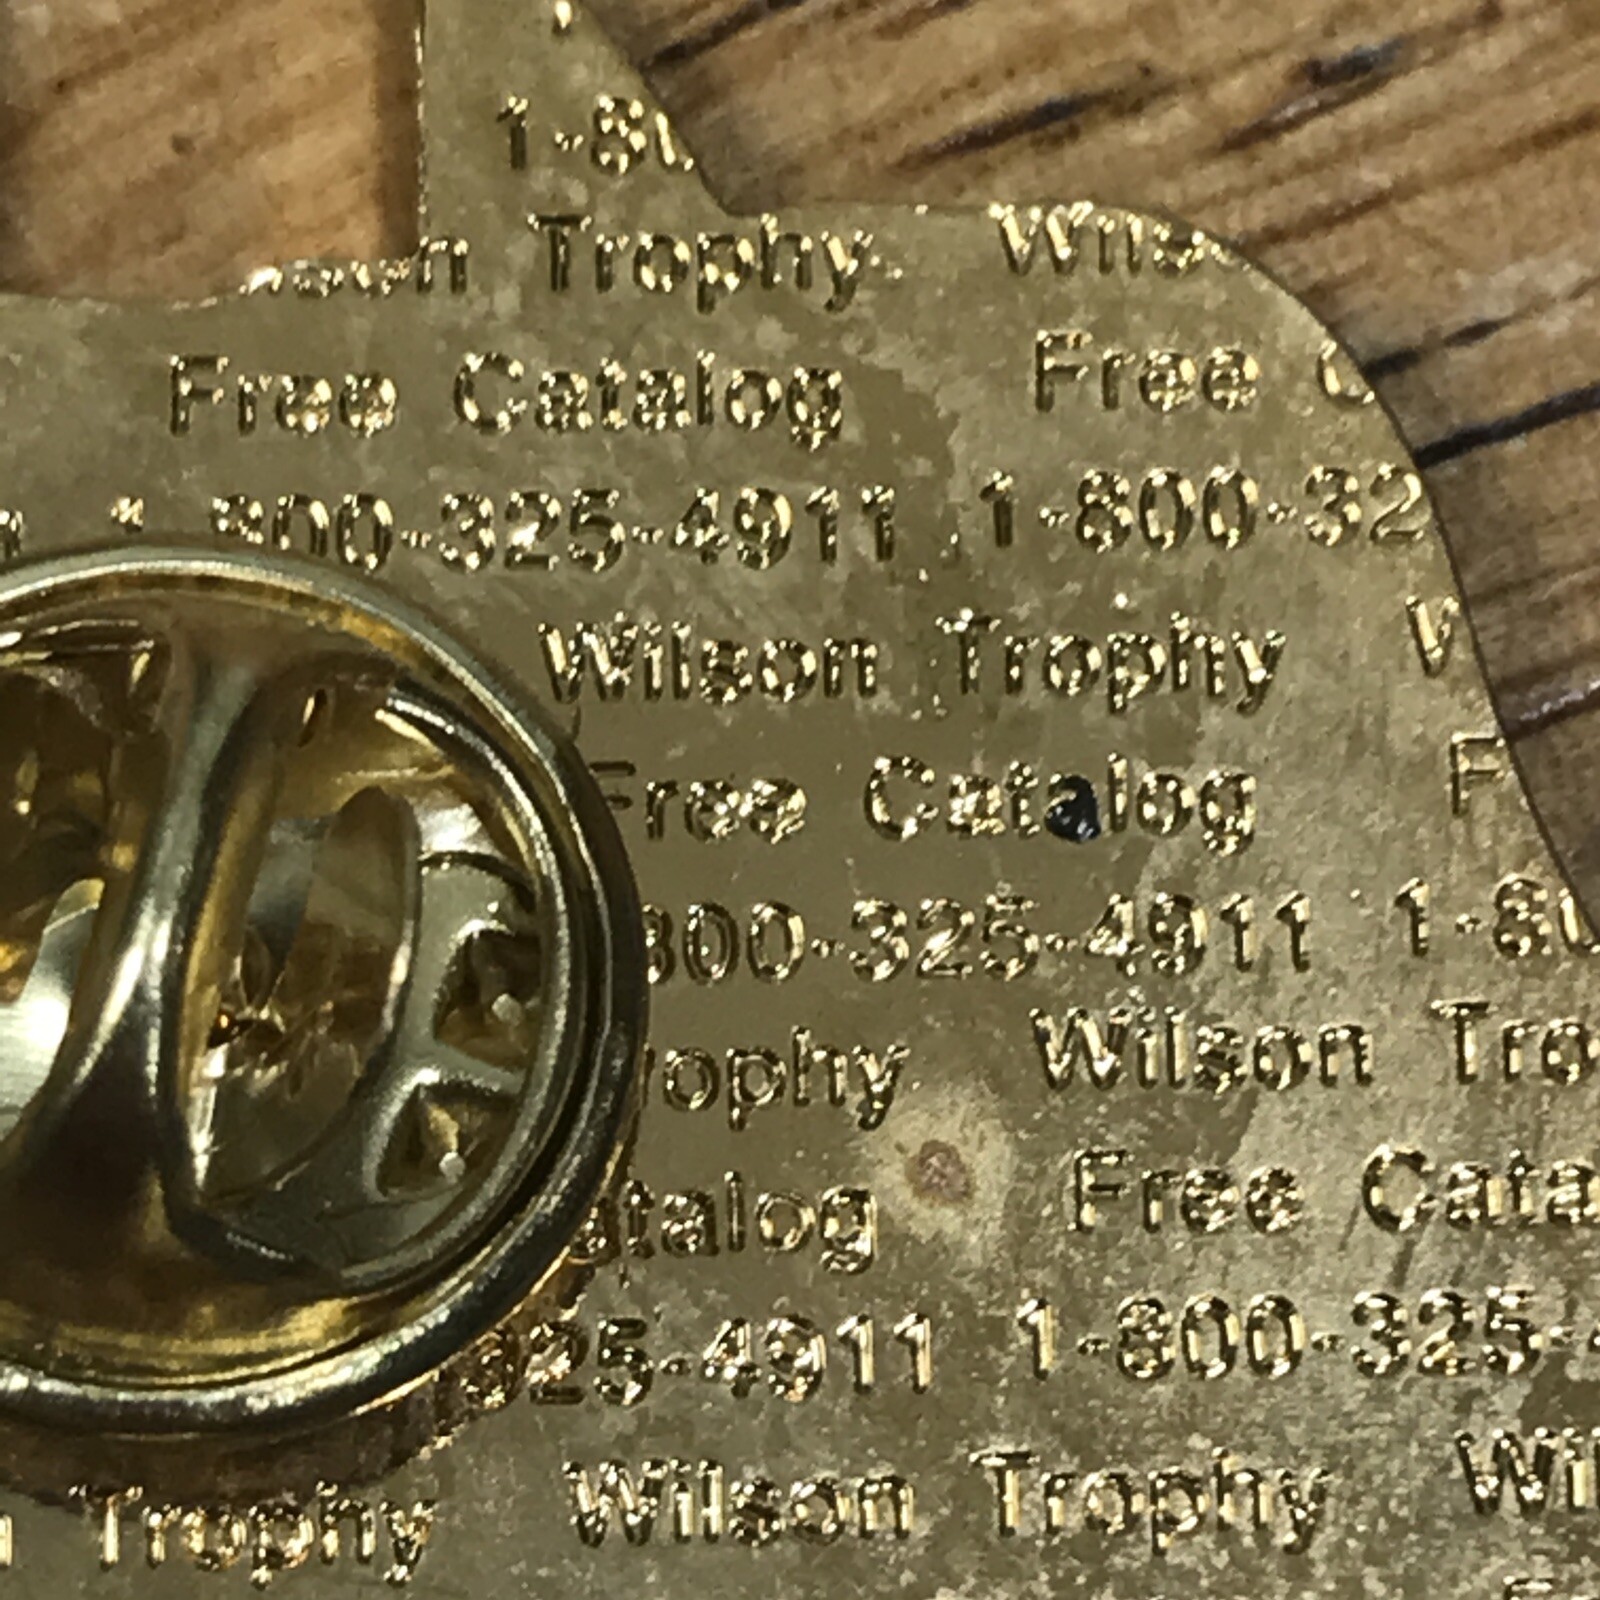 1-80
Trophy Wils
Free Catalog Free C
800-325-4911 1-800-32
Wilson Trophy W
Free Catalog F
800-325-4911 1-80
rophy Wilson Tro
atalog Free Cata
325-4911 1-800-325-
Trophy Wilson Trophy Wil